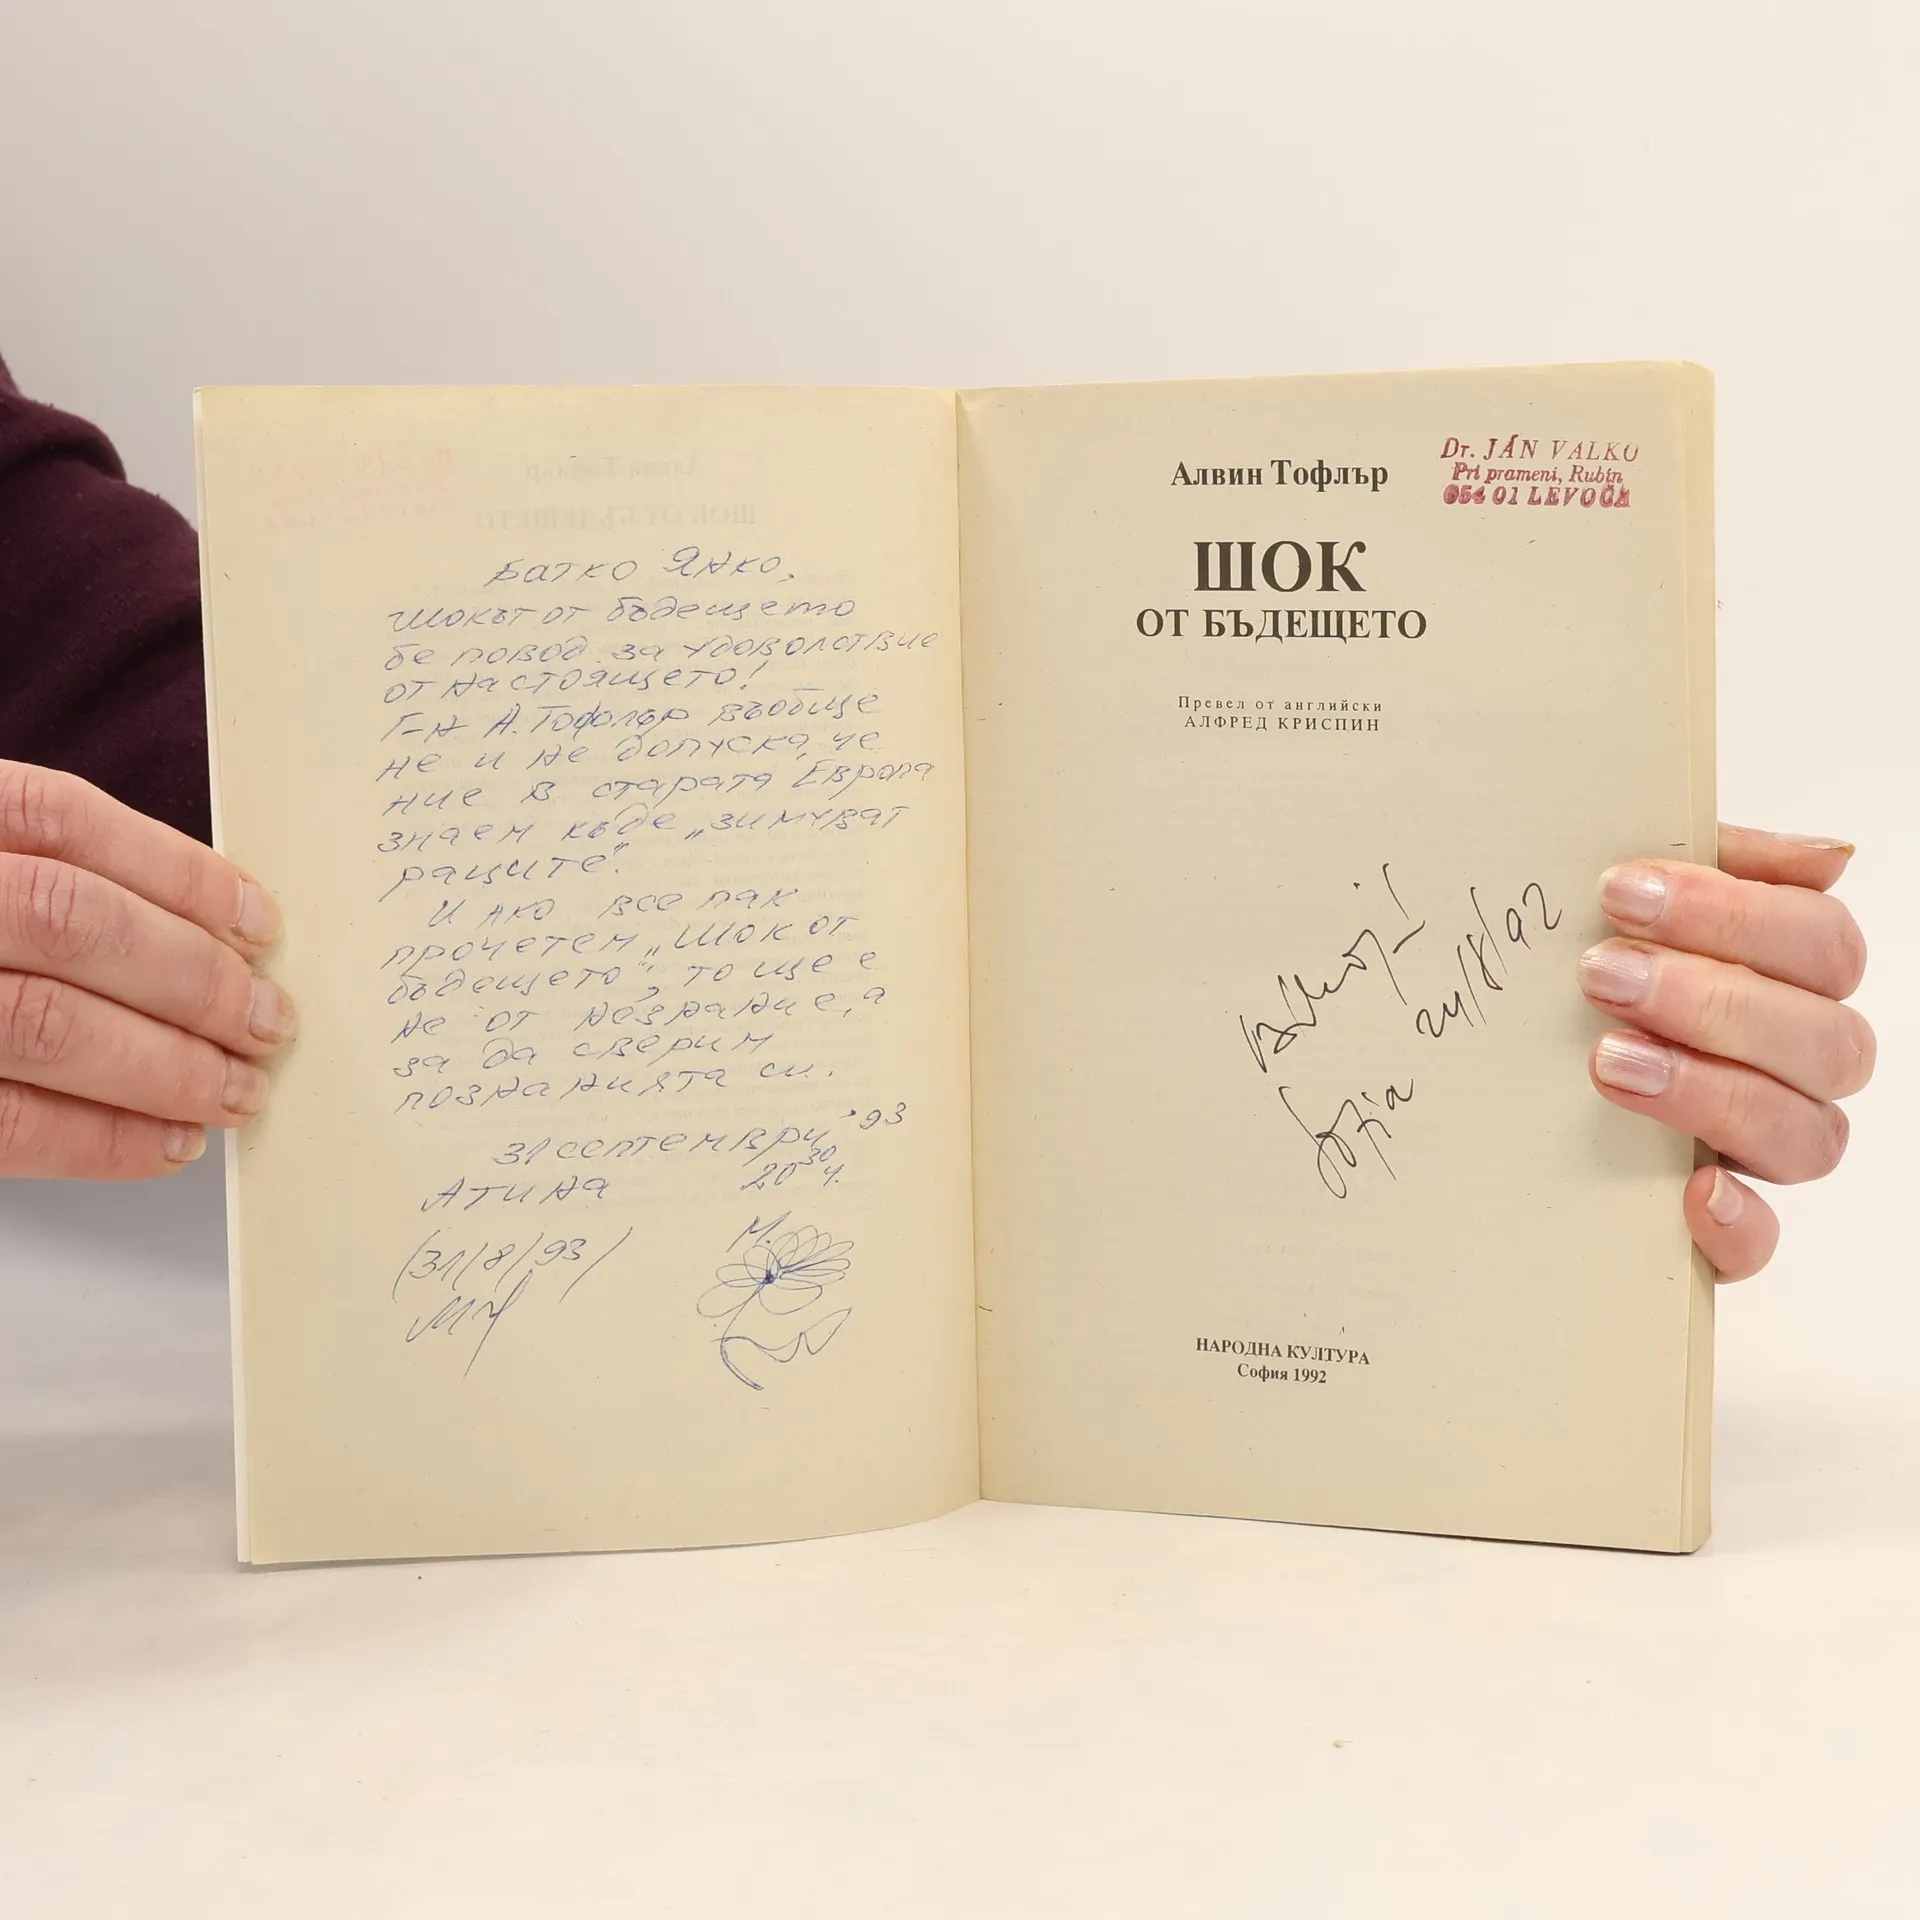 Батко Янко,
шокът от бъдещето
бе повод за удоволствие
от настоящето!
Г-н А. Тофлър въобще
не и не допуска, че
ние в старата Европа
знаем къде „зимуват
раците".
И ако все пак
прочетем „Шок от
бъдещето", то ще е
не от незнание, а
за да сверим
познанията си.
31 септември '93
Атина 20³⁰ ч.
(31/8/93)
М.
Алвин Тофлър
Dr. JÁN VALKO
Pri prameni, Rubín
054 01 LEVOČA
ШОК
ОТ БЪДЕЩЕТО
Превел от английски
АЛФРЕД КРИСПИН
24/8/92
НАРОДНА КУЛТУРА
София 1992